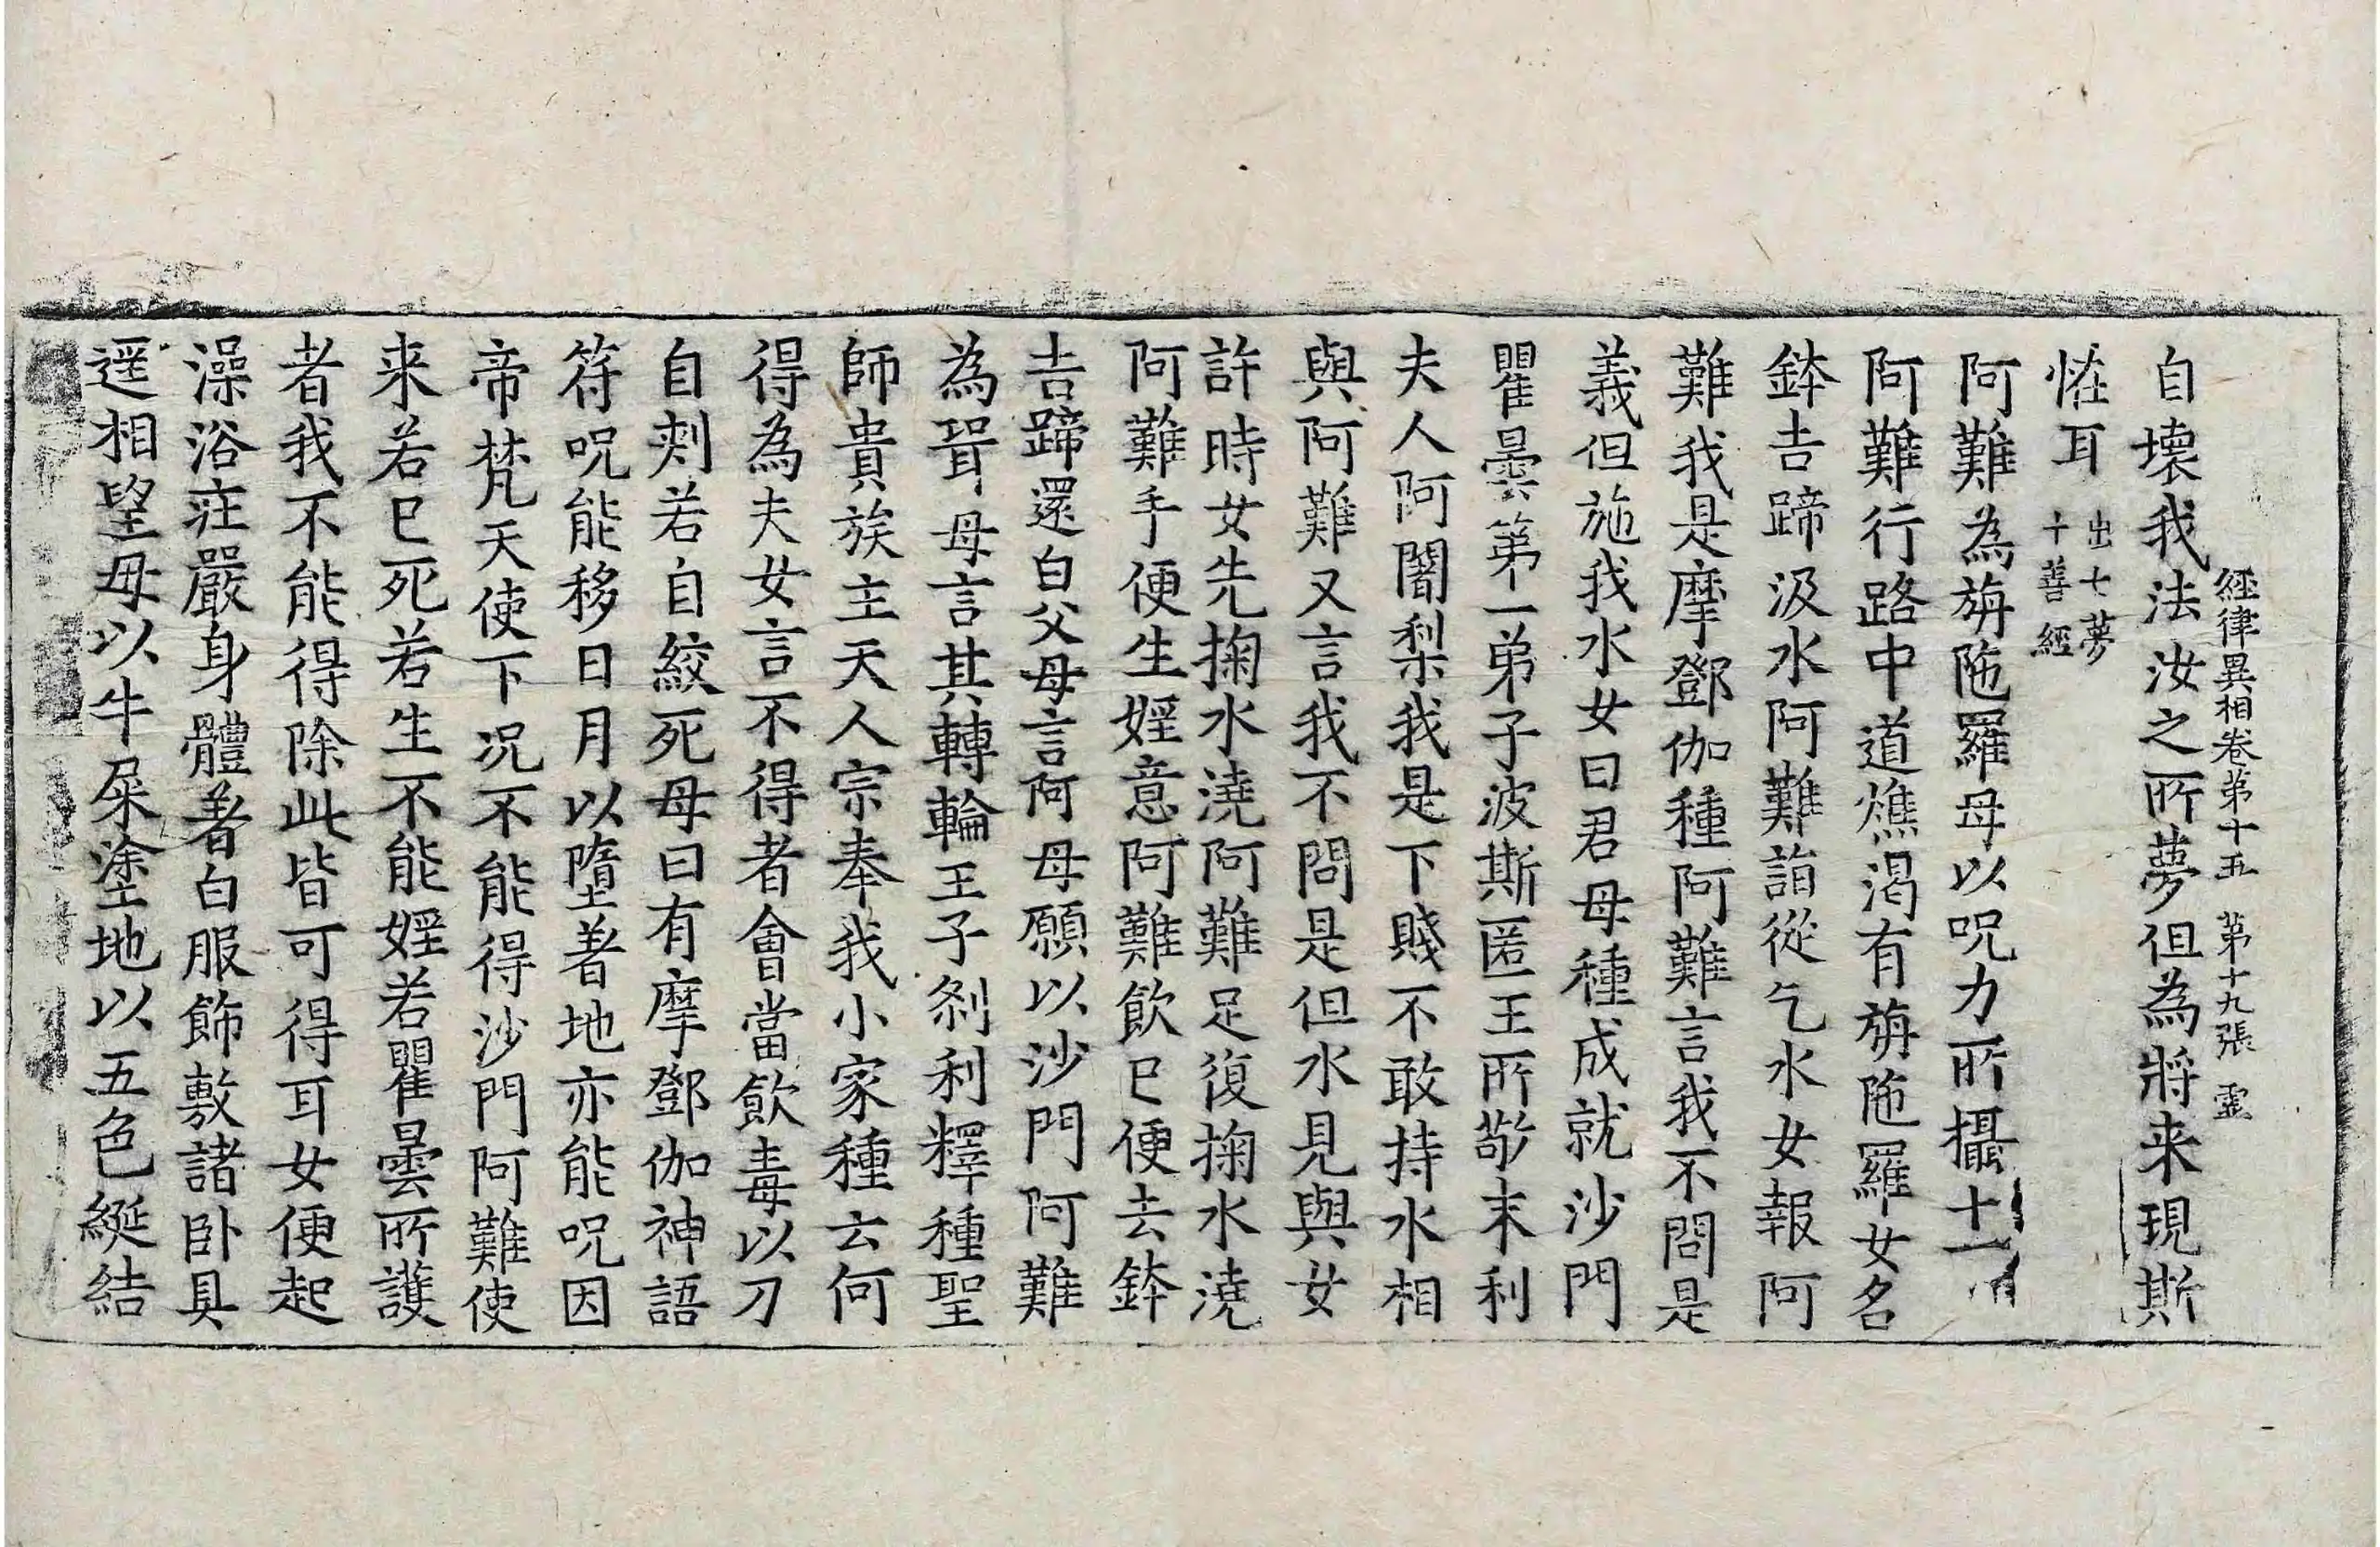 經律異相卷第十五　第十九張　靈
自壞我法汝之所夢但為將来現斯
恠耳出七夢十善經
阿難為旃陁羅母以呪力所攝十一
阿難行路中道燋渴有旃陁羅女名
鉢吉蹄汲水阿難詣從乞水女報阿
難我是摩鄧伽種阿難言我不問是
義但施我水女曰君母種成就沙門
瞿曇第一弟子波斯匿王所敬末利
夫人阿闍梨我是下賤不敢持水相
與阿難又言我不問是但水見與女
許時女先掬水澆阿難足復掬水澆
阿難手便生婬意阿難飲已便去鉢
吉蹄還白父母言阿母願以沙門阿難
為壻母言其轉輪王子剎利釋種聖
師貴族主天人宗奉我小家種云何
得為夫女言不得者會當飲毒以刀
自刺若自絞死母曰有摩鄧伽神語
符呪能移日月以墮著地亦能呪因
帝梵天使下况不能得沙門阿難使
来若已死若生不能婬若瞿曇所護
者我不能得除此皆可得耳女便起
澡浴莊嚴身體著白服飾敷諸卧具
遥相望母以牛屎塗地以五色綖結